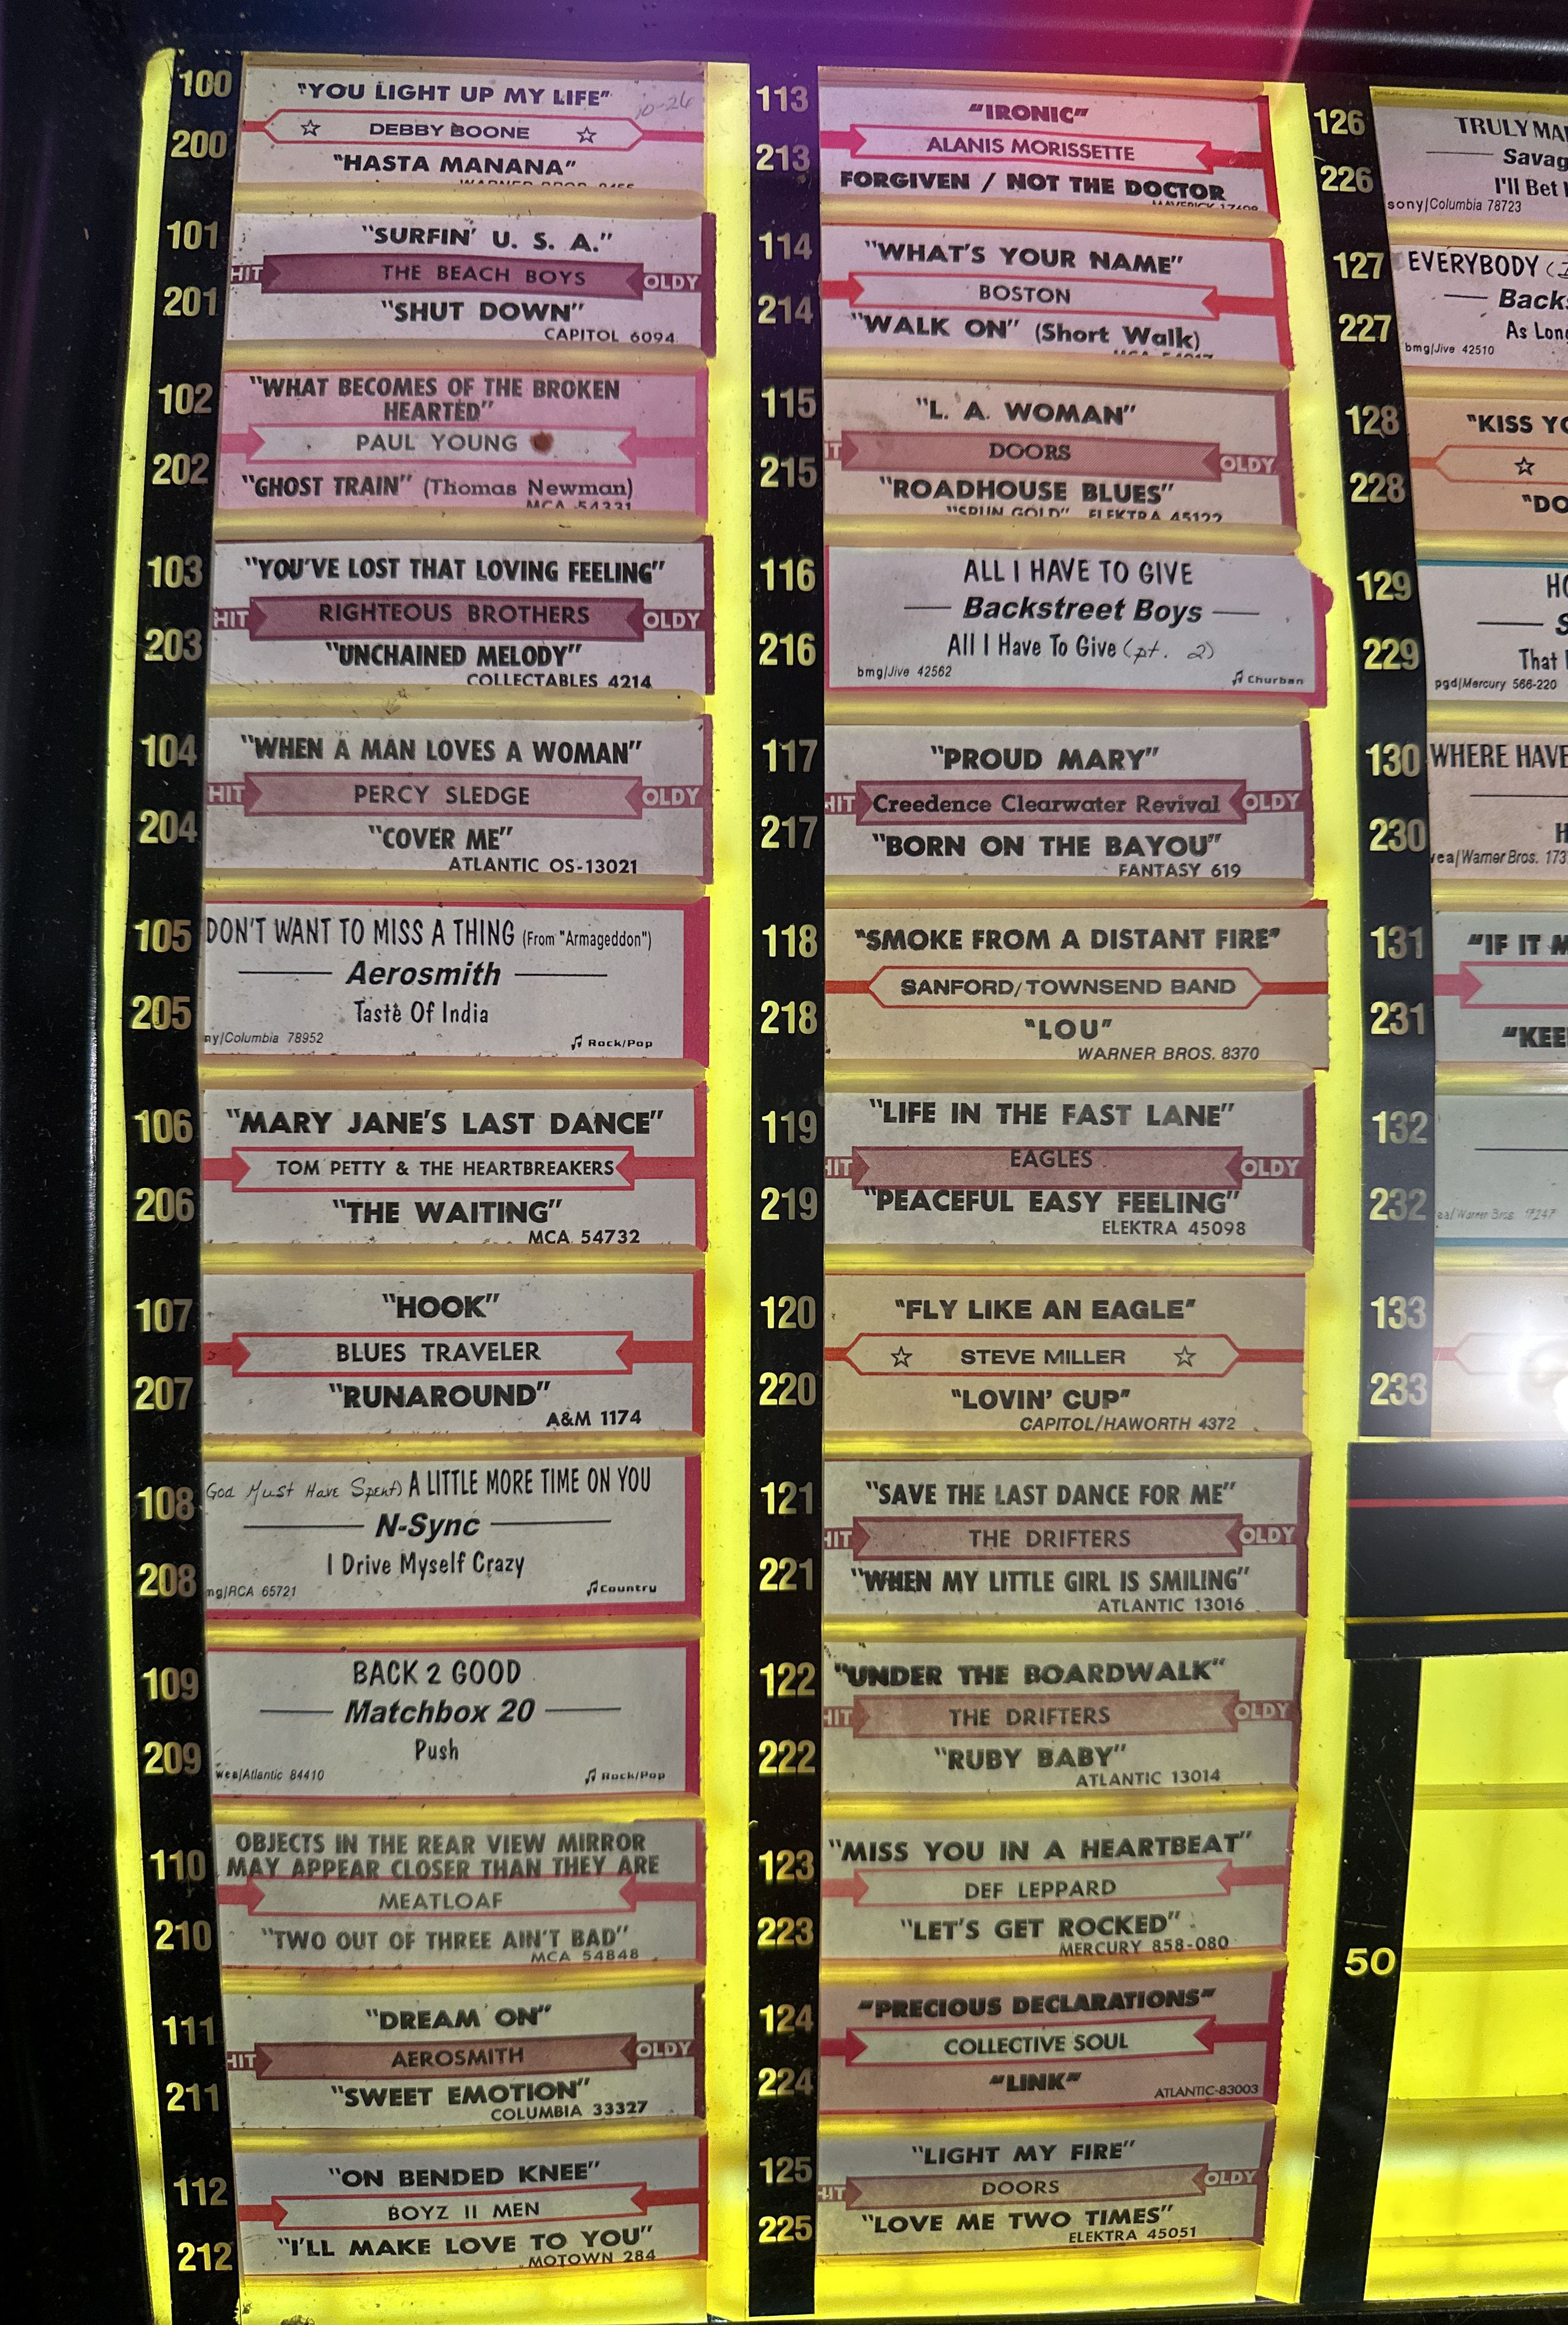 100
"YOU LIGHT UP MY LIFE" 10-26
☆ DEBBY BOONE ☆
200
"HASTA MANANA"
101
"SURFIN' U. S. A."
HIT THE BEACH BOYS OLDY
201
"SHUT DOWN"
CAPITOL 6094
102
"WHAT BECOMES OF THE BROKEN
HEARTED"
PAUL YOUNG
202
"GHOST TRAIN" (Thomas Newman)
MCA 54331
103
"YOU'VE LOST THAT LOVING FEELING"
HIT RIGHTEOUS BROTHERS OLDY
203
"UNCHAINED MELODY"
COLLECTABLES 4214
104
"WHEN A MAN LOVES A WOMAN"
HIT PERCY SLEDGE OLDY
204
"COVER ME"
ATLANTIC OS-13021
105
DON'T WANT TO MISS A THING (From "Armageddon")
Aerosmith
205
Taste Of India
ny/Columbia 78952 Rock/Pop
106
"MARY JANE'S LAST DANCE"
TOM PETTY & THE HEARTBREAKERS
206
"THE WAITING"
MCA 54732
107
"HOOK"
BLUES TRAVELER
207
"RUNAROUND"
A&M 1174
108
God Must Have Spent) A LITTLE MORE TIME ON YOU
N-Sync
208
I Drive Myself Crazy
mg/RCA 65721 Country
109
BACK 2 GOOD
Matchbox 20
209
Push
wea/Atlantic 84410 Rock/Pop
110
OBJECTS IN THE REAR VIEW MIRROR
MAY APPEAR CLOSER THAN THEY ARE
MEATLOAF
210
"TWO OUT OF THREE AIN'T BAD"
MCA 54848
111
"DREAM ON"
HIT AEROSMITH OLDY
211
"SWEET EMOTION"
COLUMBIA 33327
112
"ON BENDED KNEE"
BOYZ II MEN
212
"I'LL MAKE LOVE TO YOU"
MOTOWN 284
113
"IRONIC"
ALANIS MORISSETTE
213
FORGIVEN / NOT THE DOCTOR
114
"WHAT'S YOUR NAME"
BOSTON
214
"WALK ON" (Short Walk)
115
"L. A. WOMAN"
IT DOORS OLDY
215
"ROADHOUSE BLUES"
"SPUN GOLD" ELEKTRA 45122
116
ALL I HAVE TO GIVE
Backstreet Boys
216
All I Have To Give (pt. 2)
bmg/Jive 42562 Churban
117
"PROUD MARY"
HIT Creedence Clearwater Revival OLDY
217
"BORN ON THE BAYOU"
FANTASY 619
118
"SMOKE FROM A DISTANT FIRE"
SANFORD/TOWNSEND BAND
218
"LOU"
WARNER BROS. 8370
119
"LIFE IN THE FAST LANE"
HIT EAGLES OLDY
219
"PEACEFUL EASY FEELING"
ELEKTRA 45098
120
"FLY LIKE AN EAGLE"
☆ STEVE MILLER ☆
220
"LOVIN' CUP"
CAPITOL/HAWORTH 4372
121
"SAVE THE LAST DANCE FOR ME"
HIT THE DRIFTERS OLDY
221
"WHEN MY LITTLE GIRL IS SMILING"
ATLANTIC 13016
122
"UNDER THE BOARDWALK"
HIT THE DRIFTERS OLDY
222
"RUBY BABY"
ATLANTIC 13014
123
"MISS YOU IN A HEARTBEAT"
DEF LEPPARD
223
"LET'S GET ROCKED"
MERCURY 858-080
124
"PRECIOUS DECLARATIONS"
COLLECTIVE SOUL
224
"LINK"
ATLANTIC-83003
125
"LIGHT MY FIRE"
HIT DOORS OLDY
225
"LOVE ME TWO TIMES"
ELEKTRA 45051
126
TRULY MA
Savag
226
I'll Bet
sony/Columbia 78723
127
EVERYBODY
Back
227
As Long
bmg/Jive 42510
128
"KISS YO
☆
228
"DO
129
HO
S
229
That
pgd/Mercury 566-220
130
WHERE HAVE
230
H
ea/Warner Bros. 173
131
"IF IT M
231
"KEE
132
232
ea/Warner Bros. 17247
133
233
50